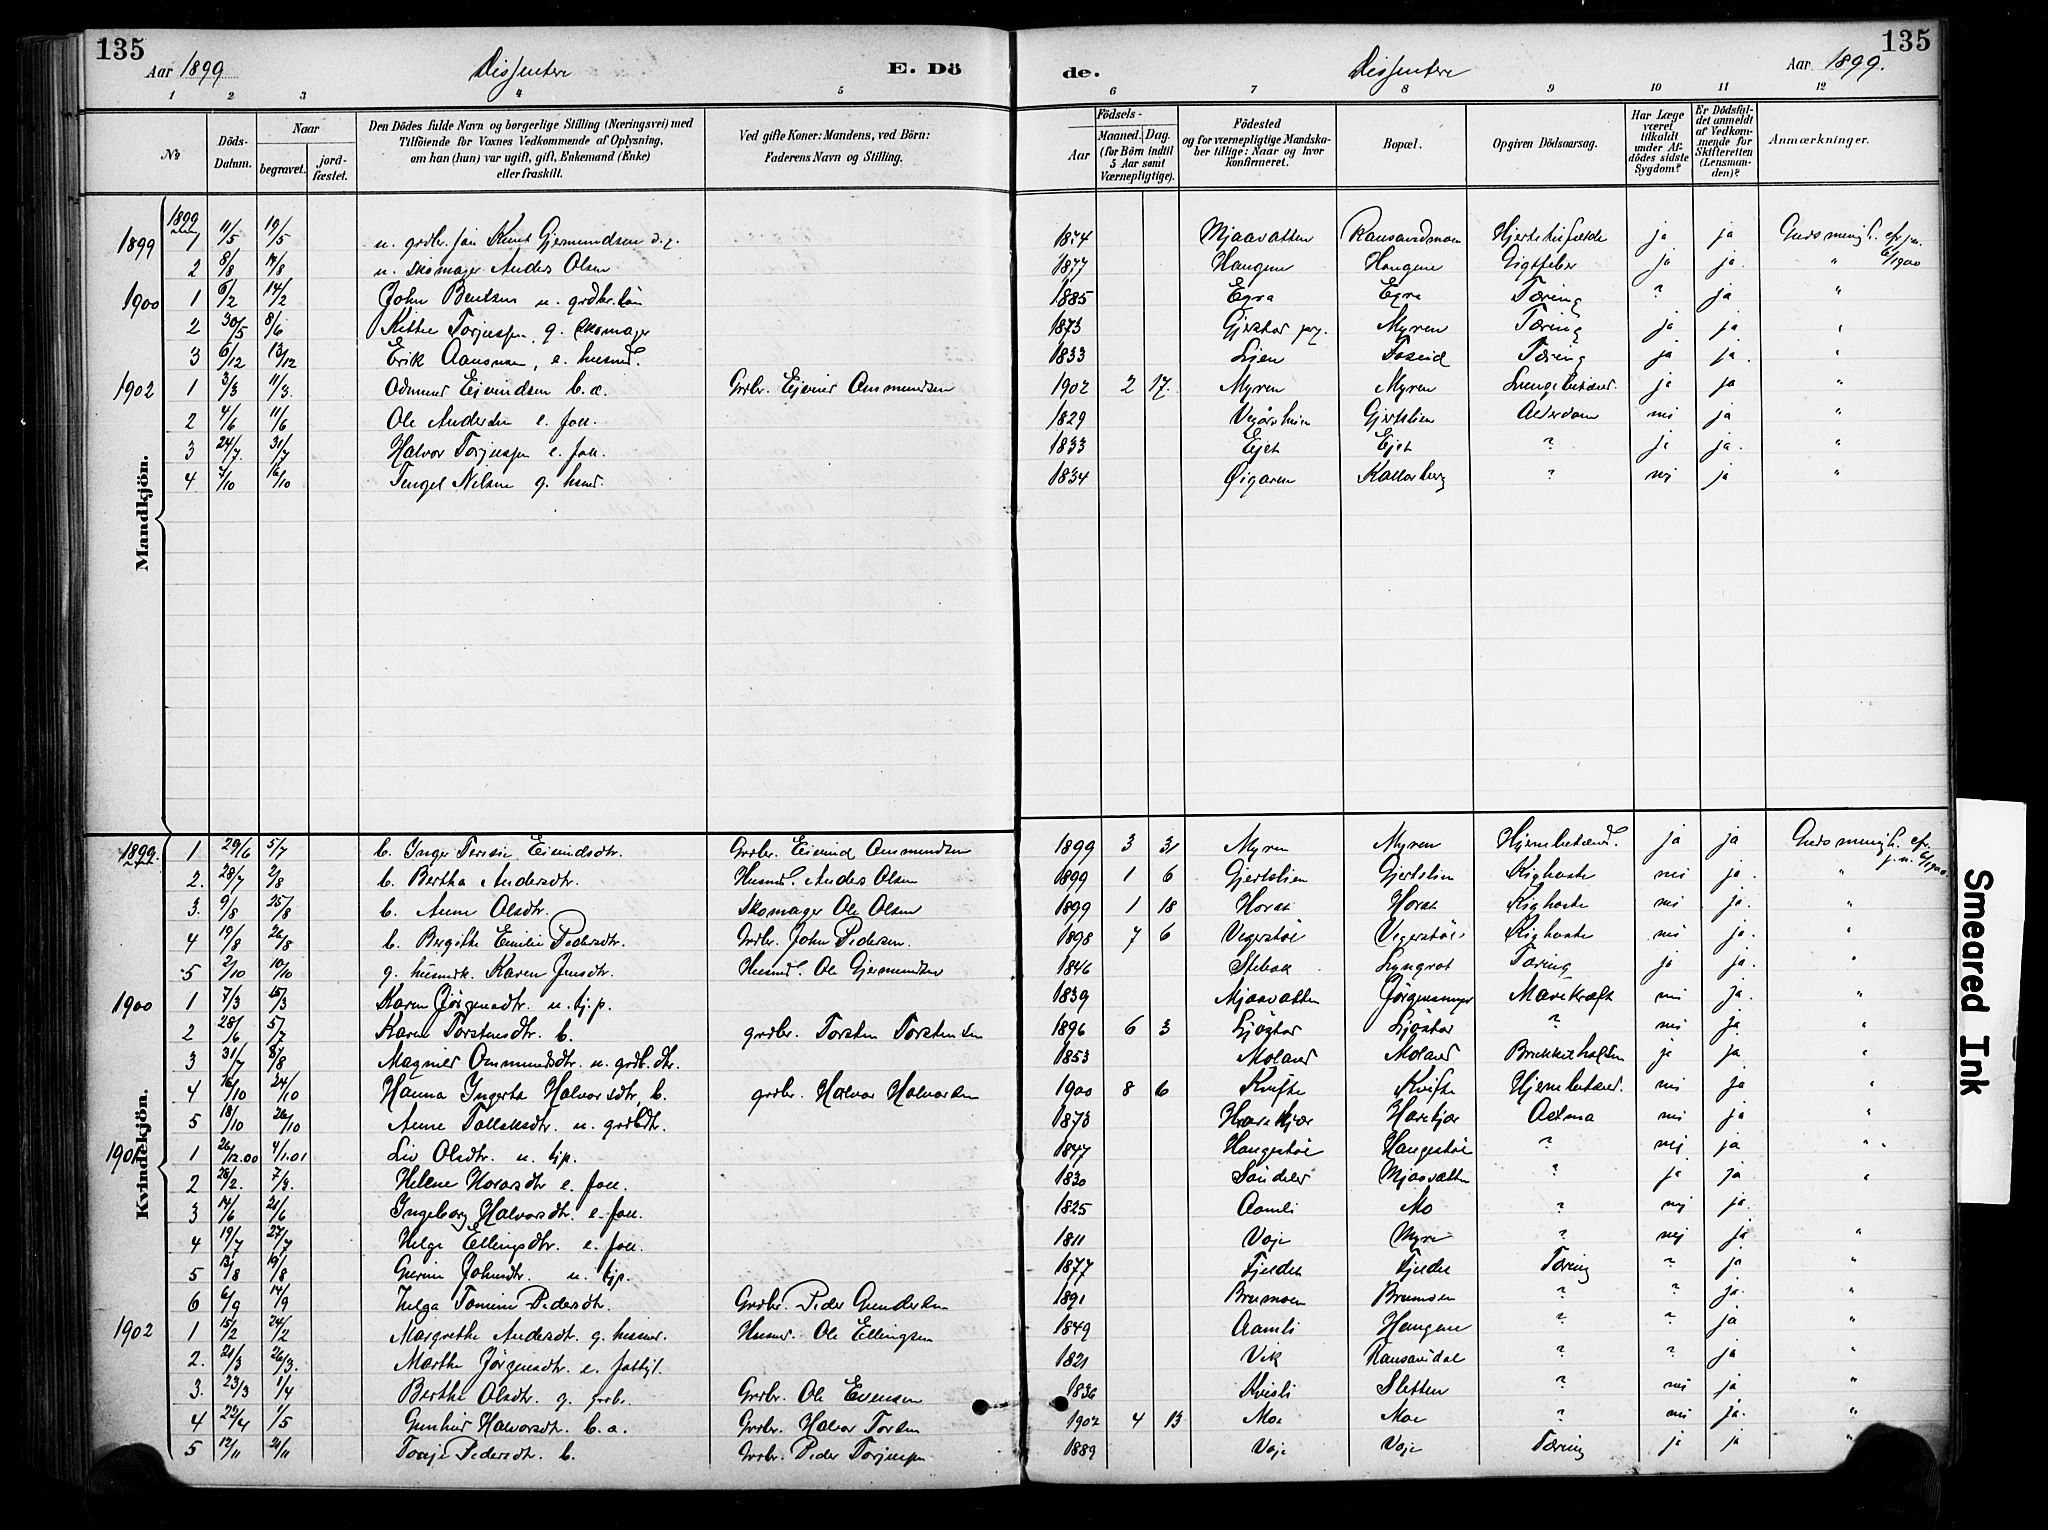 135
Aar 1899
Dissentere
E. Dö
de.
Dissentere
Aar 1899.
135
1 2 3 4 5 6 7 8 9 10 11 12
No
Döds-Datum.
Naar
begravet.
jord-fæstet.
Den Dödes fulde Navn og borgerlige Stilling (Næringsvei) med
Tilföiende for Voxnes Vedkommende af Oplysning,
om han (hun) var ugift, gift, Enkemand (Enke)
eller fraskilt.
Ved gifte Koner: Mandens, ved Börn:
Faderens Navn og Stilling.
Födsels-
Aar
Maaned. Dag.
(for Börn indtil
5 Aar samt
Værnepligtige).
Födested
og for værnepligtige Mandska-
ber tillige: Naar og hvor
konfirmeret.
Bopæl.
Opgiven Dödsaarsag.
Har Læge
været
tilkaldt
under Af-
dödes sidste
Sygdom?
Er Dödsfal-
det anmeldt
af Vedkom-
mende for
Skifteretten
(Lensman-
den)?
Anmærkninger.
Mandkjön.
1899 1899 1 11/5 19/5 u. grdbr. sön Knut Gjermundsen 1874 Mjaavatten Ransandmoen ja ja
2 8/8 14/8 u. Skomager Anders Olsen 1877 Haugene Haugene Gigtfeber ja ja. "
1900 1 6/2 14/2 John Bentsen u. grdbr. sön 1885 Egra Egra Tæring ? ja "
2 30/5 8/6 Kittil Torjussen g. Skomager 1873 Gjerstad Myren Tæring ja ja "
3 6/12 13/12 Erik Aanonsen, e. husmd. 1833 Lien Tæring ja ja. "
1902 1 3/3 11/3. Odmund Eivindsen b. a. Grdbr. Eivind Ommundsen 1902 2 17. Myren Myren Lungebetænd. ja ja "
2 4/6 11/6 Ole Andersen e. foll. 1829 Gjertslien Alderdom nei ja "
3 24/7 31/7 Halvor Torjussen e. foll. 1833 Eget Eget ? ja ja. "
4 7/10 16/10 Tengel Nilsen g. husmd. 1834 Øigaren ? nei ja "
Kvindekjön.
1899. 1 29/6 5/7 b. Inger Teresie Eivindsdtr. Grdbr. Eivind Ommundsen 1899 3 31 Myren Myren Hjernebetænd. ja ja
2. 28/7 2/8 b. Bertha Andersdtr. Husmd. Anders Olsen 1899 1 6 Gjertslien Gjertslien Kighoste nei ja. "
3. 9/8 25/8 b. Anne Olsdtr. Skomager Ole Olsen 1899 1 18 Horst Horst Kighoste nei ja. "
4 19/8 26/8 b. Bergithe Emilie Pedersdtr. Grdbr. John Pedersen. 1898 7 6 Vegerstöl Vegerstöl Kighoste nei ja. "
5 2/10 10/10 g. husmdk. Karen Jensdtr. Husmd. Ole Gjermundsen 1846 Stebak Lyngrot Tæring ja ja. "
1900 1 7/3 15/3 Karen Jörgensdtr. u. tj. p. 1839 Mjaavatten Mavekræft nei ja. "
2 28/6 5/7 Karen Torstensdtr. b. grdbr. Torsten Torstensen 1896 6 3 ? nei ja. "
3 31/7 8/8 Magnild Ommundsdtr. u. grdb. dtr. 1853 Moland Moland ja ja "
4 16/10 24/10 Hanna Ingertha Halvorsdtr, b. grdbr. Halvor Halvorsen 1900 8 6 Kvifte Kvifte Hjernebetænd. nei ja "
5 18/10 26/10 Anne Tallaksdtr. u. grdb.dtr. 1873 Astma nei ja "
1901 1 26/12.00 4/1.01 Liv Olsdtr. u. tjp. 1847 Haugestöl Haugestöl ? nei ja "
2 28/2. 7/3. Helene Hovarsdtr e. foll. 1830 Söndeled Mjaavatten ? ja ja "
3 14/6 21/6 Ingeborg Halvorsdtr. e. foll. 1825 Aamli Mo ? nei ja.
4 19/7 27/7 Helge Ellingsdtr. e. foll. 1811 Voje Myre ? nei ja "
5 13/8 19/8 Gurine Johnsdtr. u. tjp. 1877 Fjeldet Fjeldet Tæring ? ja "
6 6/9 14/9 Helga Tomine Pedersdtr. Grdbr. Peder Gundersen 1891 Brumoen Brumoen ? ? ja. "
1902 1 15/2 24/2 Margrethe Andersdtr. g. husmd. Husmd. Ole Ellingsen 1849 Aamli Haugene ? ? ja "
2. 21/3 26/3. Marthe Jörgensdtr. e. fattigl. 1821 Vik Ransandal ? ? ja "
3. 23/3 1/4 Berthe Olsdtr. g. grdb. Grdbr. Ole Evensen 1836 Kvisli Sletten ? nei ja "
4 22/4 1/5 Gunhild Halvorsdtr. b. a. Grdbr. Halvor Torsen 1902 4 13 Moe Moe ? nei ja. "
5 12/11 21/11 Tonje Pedersdtr. b. Grdbr. Peder Torjussen 1889 Voje Voje Tæring ja ja "
Smeared Ink